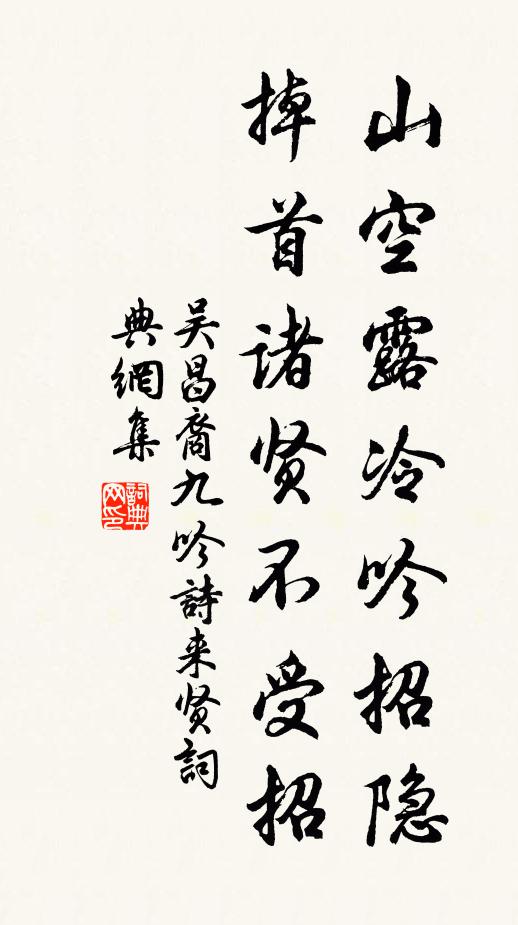 山空露冷吟招隐
掉首诸贤不受招
吴昌裔九吟詩来贤詞
典網集
詞典
网印